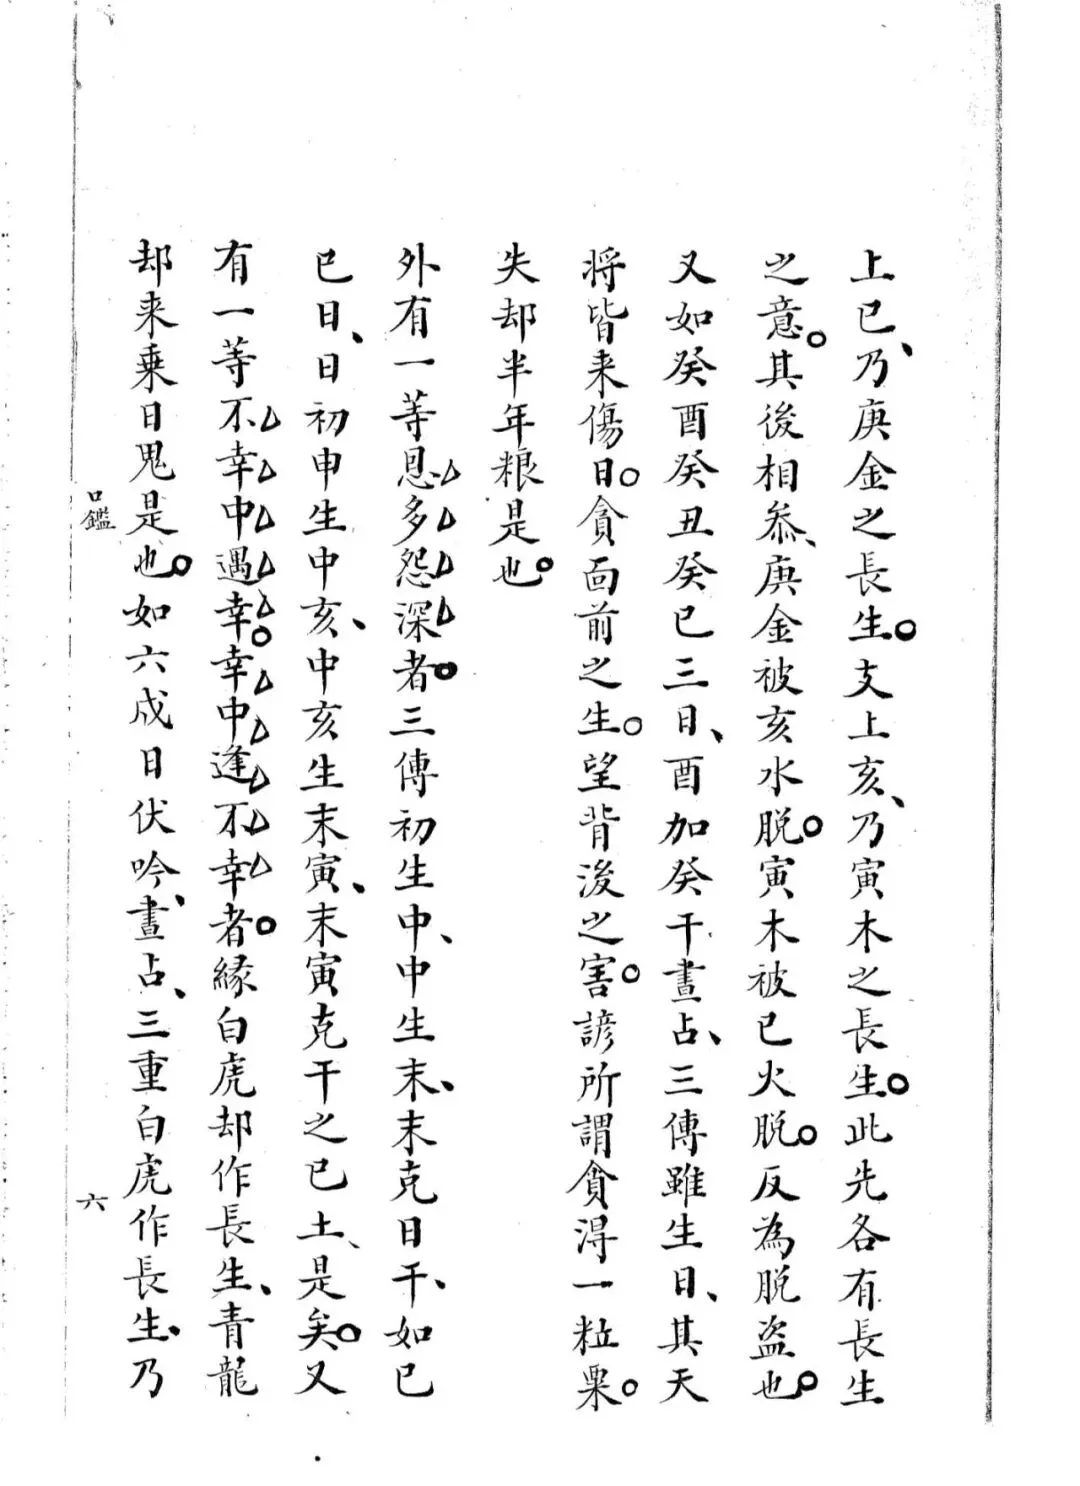 上巳、乃庚金之長生。支上亥、乃寅木之長生。此先各有長生
之意。其後相叅、庚金被亥水脱。寅木被巳火脱。反為脱盗也。
又如癸酉癸丑癸巳三日、酉加癸干晝占、三傳雖生日、其天
将皆来傷日。貪面前之生。望背後之害。諺所謂貪得一粒粟。
失却半年粮是也。
外有一等恩多怨深者。三傳初生中、中生末、末克日干、如已
巳日、日初申生中亥、中亥生末寅、末寅克干之已土、是矣。又
有一等不幸中遇幸。幸中逢不幸者。緣白虎却作長生、青龍
却来乗日鬼是也。如六戍日伏吟、晝占、三重白虎作長生、乃
口鑑
六